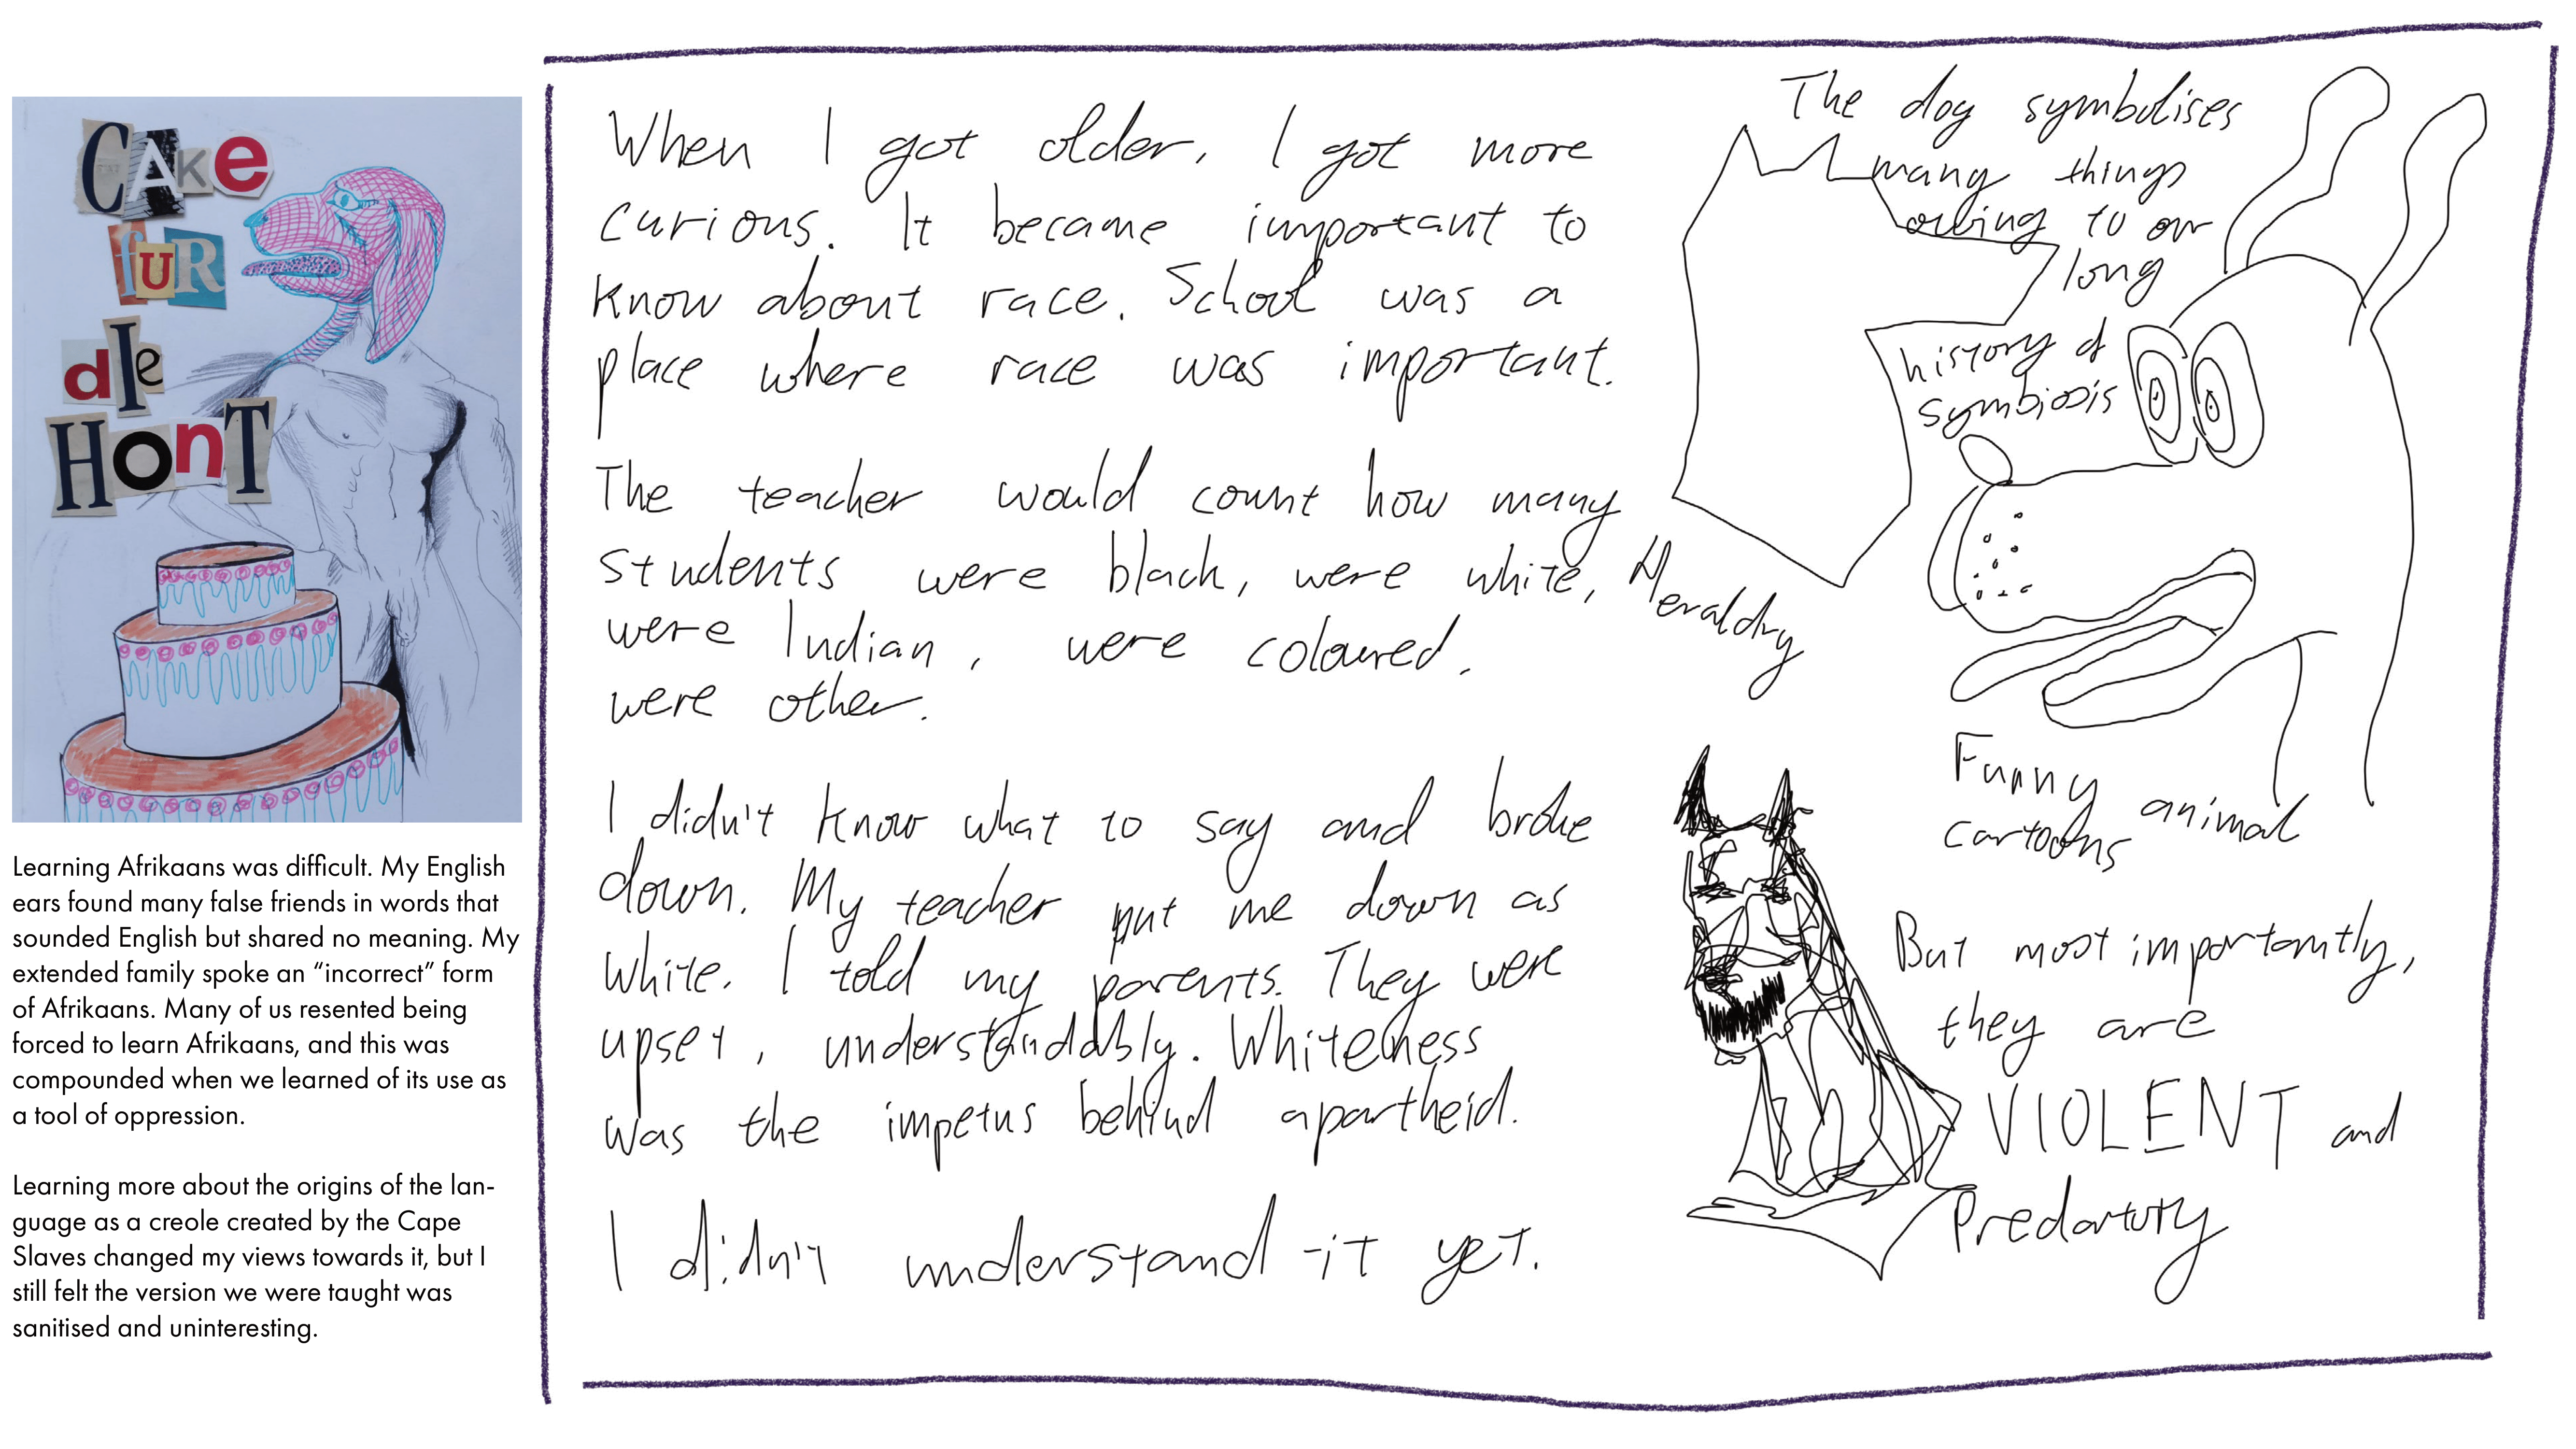 CAKe
fUR
dIe
HonT
Learning Afrikaans was difficult. My English
ears found many false friends in words that
sounded English but shared no meaning. My
extended family spoke an “incorrect” form
of Afrikaans. Many of us resented being
forced to learn Afrikaans, and this was
compounded when we learned of its use as
a tool of oppression.
Learning more about the origins of the lan-
guage as a creole created by the Cape
Slaves changed my views towards it, but I
still felt the version we were taught was
sanitised and uninteresting.
When I got older, I got more
curious. It became important to
know about race. School was a
place where race was important.
The teacher would count how many
students were black, were white,
were Indian, were coloured,
were other.
I didn't know what to say and broke
down. My teacher put me down as
white. I told my parents. They were
upset, understandably. Whiteness
was the impetus behind apartheid.
I didn't understand it yet.
The dog symbolises
many things
owing to our
long
history of
symbiosis
Heraldry
Funny animal
cartoons
But most importantly,
they are
VIOLENT and
Predartory